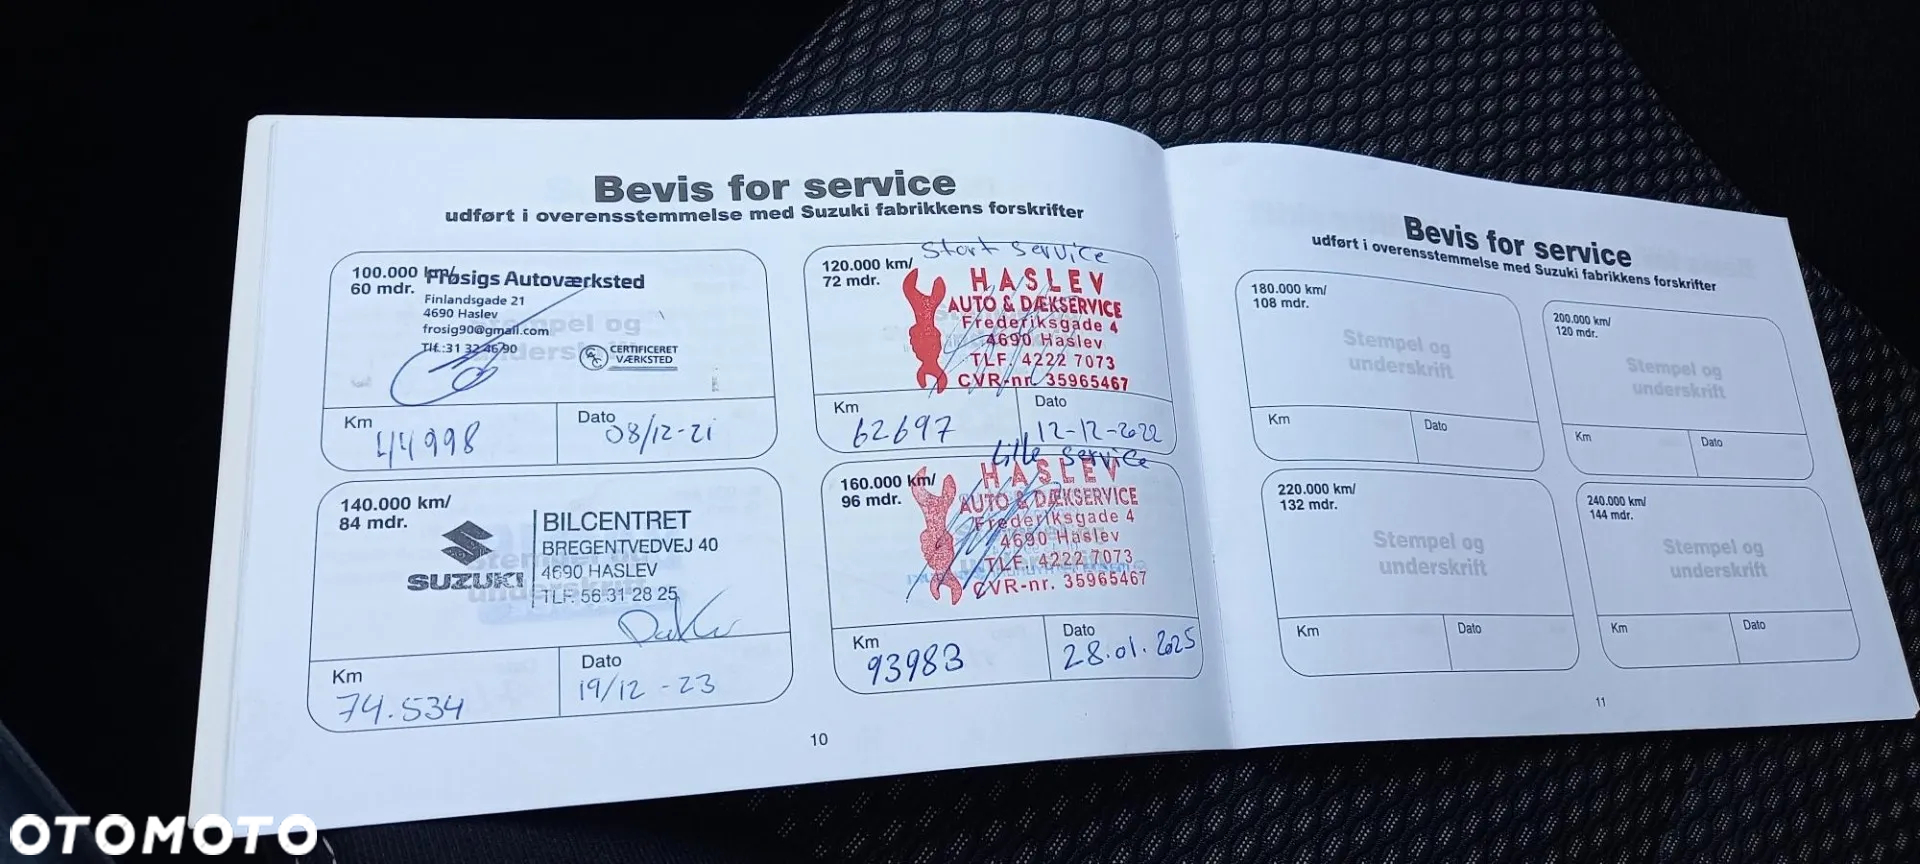 Bevis for service
udført i overensstemmelse med Suzuki fabrikkens forskrifter
100.000 km/
60 mdr.
Frøsigs Autoværksted
Finlandsgade 21
4690 Haslev
frosig90@gmail.com
Tlf.:31 32 46 90
CERTIFICERET
VÆRKSTED
Stempel og
underskrift
Km
44998
Dato
08/12-21
Start service
120.000 km/
72 mdr.
HASLEV
AUTO & DÆKSERVICE
Frederiksgade 4
4690 Haslev
TLF. 4222 7073
CVR-nr. 35965467
Km
62697
Dato
12-12-2022
140.000 km/
84 mdr.
SUZUKI
BILCENTRET
BREGENTVEDVEJ 40
4690 HASLEV
TLF. 56 31 28 25
Stempel og
underskrift
Km
74.534
Dato
19/12-23
Lille service
160.000 km/
96 mdr.
HASLEV
AUTO & DÆKSERVICE
Frederiksgade 4
4690 Haslev
TLF. 4222 7073
CVR-nr. 35965467
Km
93983
Dato
28.01.2025
10
Bevis for service
udført i overensstemmelse med Suzuki fabrikkens forskrifter
180.000 km/
108 mdr.
Stempel og
underskrift
Km
Dato
200.000 km/
120 mdr.
Stempel og
underskrift
Km
Dato
220.000 km/
132 mdr.
Stempel og
underskrift
Km
Dato
240.000 km/
144 mdr.
Stempel og
underskrift
Km
Dato
11
OTOMOTO